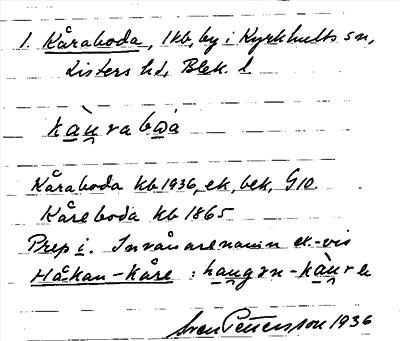 1. Kåraboda, 1kb, by i Kyrkhults sn,
Listers hd, Blek. l
kàu̯raboa
Kåraboda kb 1936, ek, bek, G10.
Kåreboda kb 1865
Prep i. Invånarenamn ex.-vis
Håkan-Kåre : hau̯gən-kàu̯rə
Sven Pettersson 1936